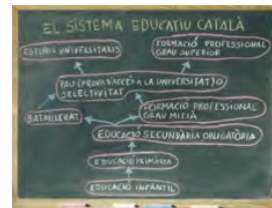 EL SISTEMA EDUCATIU CATALÀ
ESTUDIS UNIVERSITARIS
FORMACIÓ PROFESSIONAL
GRAU SUPERIOR
PAU (PROVA D'ACCÉS A LA UNIVERSITAT) O
SELECTIVITAT
BATXILLERAT
FORMACIÓ PROFESSIONAL
GRAU MITJÀ
EDUCACIÓ SECUNDÀRIA OBLIGATÒRIA
EDUCACIÓ PRIMÀRIA
EDUCACIÓ INFANTIL